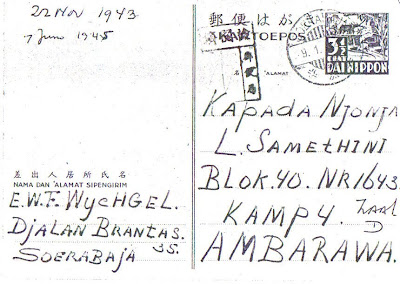 22 NOV 1943
7 Juni 1945
郵便はがき
TOEPOS
3½
CENT
DAI NIPPON
9.1
ALAMAT
KAPADA NJONJA
L. SAMETHINI
BLOK.40. NR1643
KAMP 4. Zaal
D
AMBARAWA.
差出人居所氏名
NAMA DAN ALAMAT SIPENGIRIM
E.W.F. WYCHGEL.
DJALAN BRANTAS.
35.
SOERABAJA